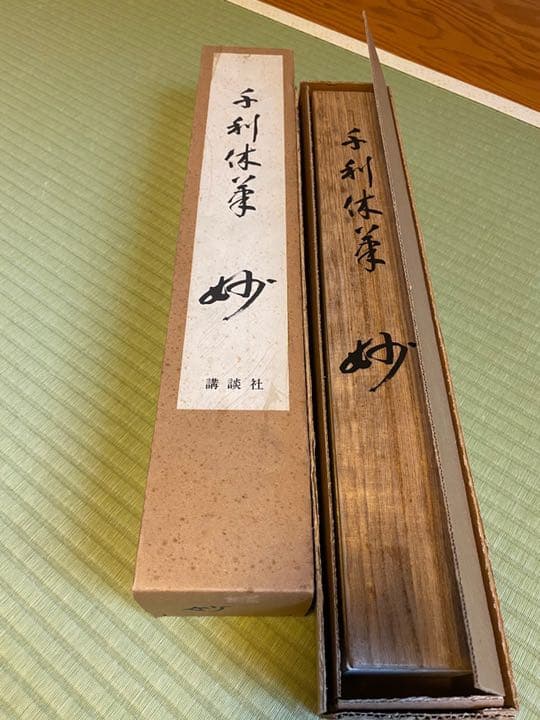 千利休筆
妙
講談社
千利休筆
妙
妙